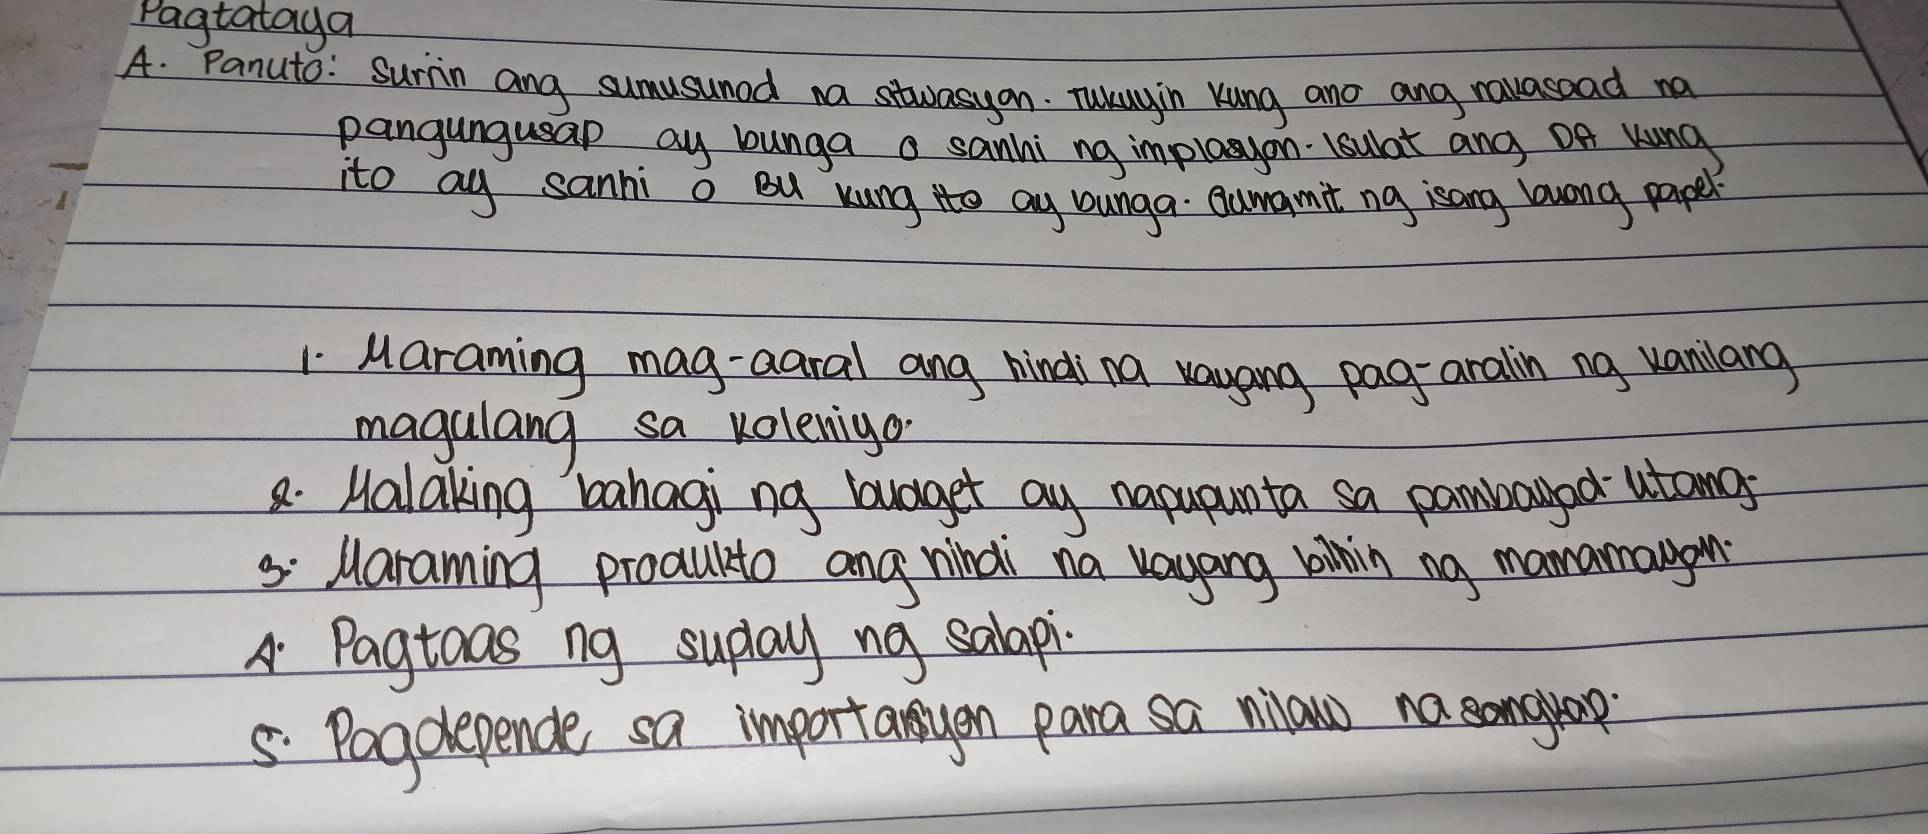 Pagtataya
A. Panuto: Suriin ang sumusunod na sitwasyon. Tukuyin kung ano ang nakasaad na
pangungusap ay bunga o sanhi ng implasyon. Isulat ang DA kung
ito ay sanhi o BU kung ito ay bunga. Gumamit ng isang buong papel.
1. Maraming mag-aaral ang hindi na kayang pag-aralin ng kanilang
magulang sa kolehiyo.
2. Malaking bahagi ng budget ay napupunta sa pambayad-utang.
3. Maraming produkto ang hindi na kayang bilhin ng mamamayan.
4. Pagtaas ng suplay ng salapi.
5. Pagdepende sa importasyon para sa hilaw na sangkap.